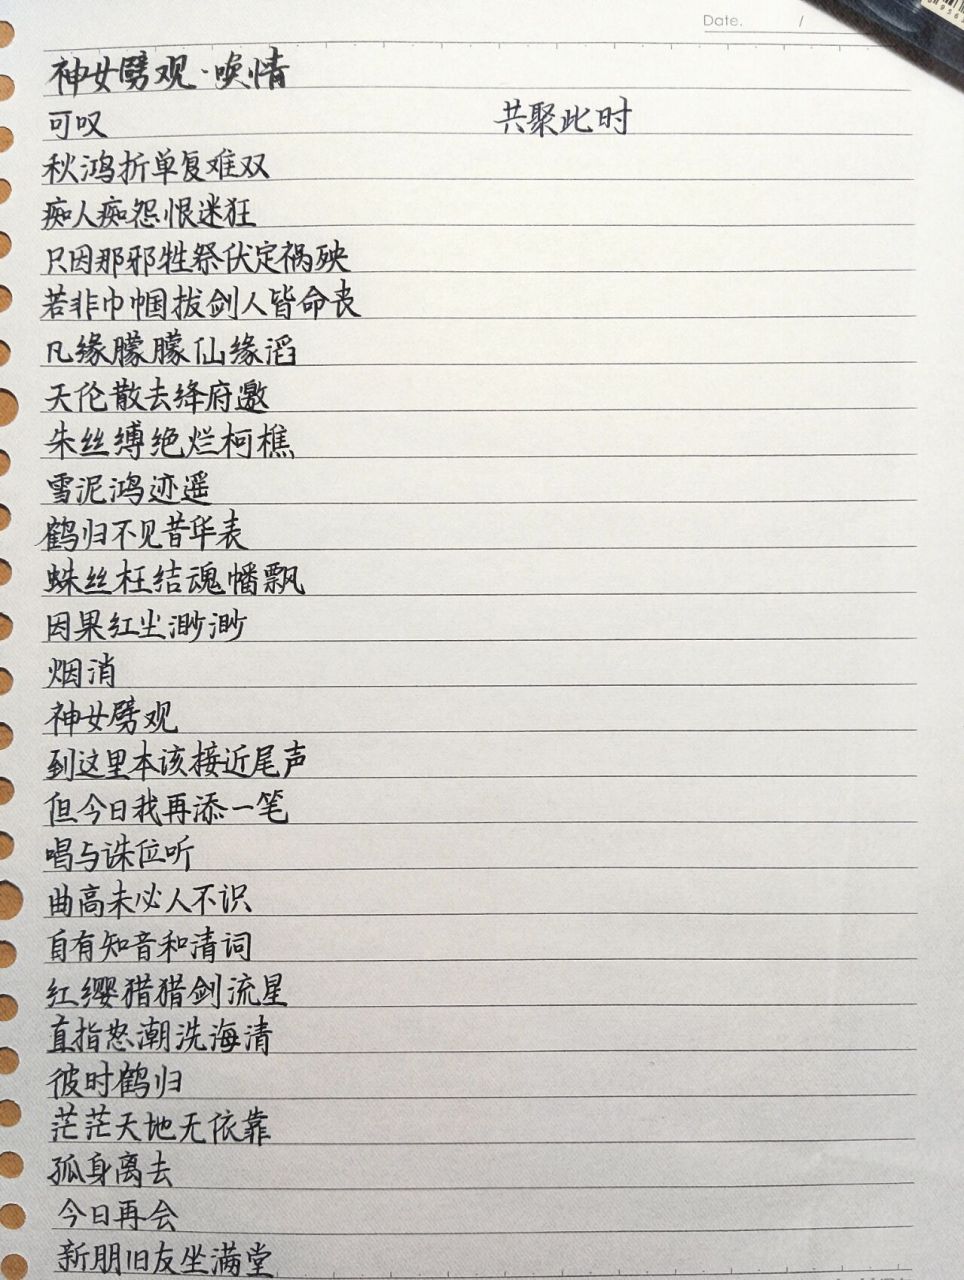 Date. /
神女劈观·唤情
可叹
秋鸿折单复难双
痴人痴怨恨迷狂
只因那邪牲祭伏定祸殃
若非巾帼拔剑人皆命丧
凡缘朦朦仙缘滔
天伦散去绛府邀
朱丝缚绝烂柯樵
雪泥鸿迹遥
鹤归不见昔华表
蛛丝枉结魂幡飘
因果红尘渺渺
烟消
神女劈观
到这里本该接近尾声
但今日我再添一笔
唱与诛位听
曲高未必人不识
自有知音和清词
红缨猎猎剑流星
直指怒潮洗海清
彼时鹤归
茫茫天地无依靠
孤身离去
今日再会
新朋旧友坐满堂
共聚此时